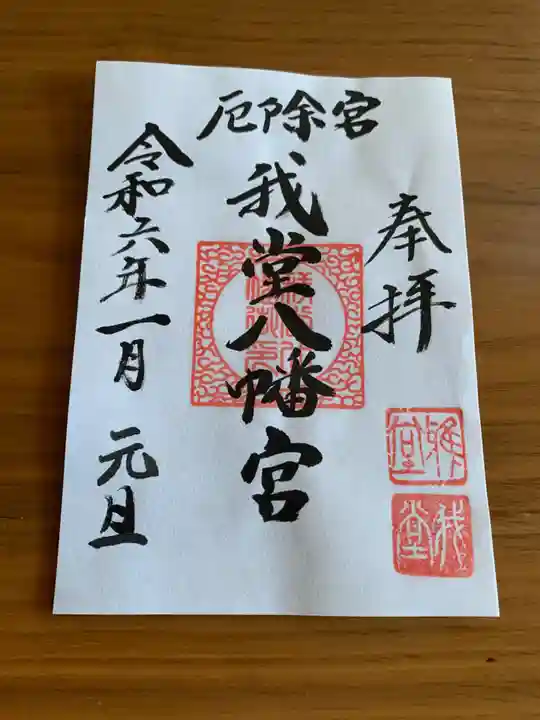 厄除宮
奉拝
我堂八幡宮
令和六年一月 元旦
雅堂
我堂